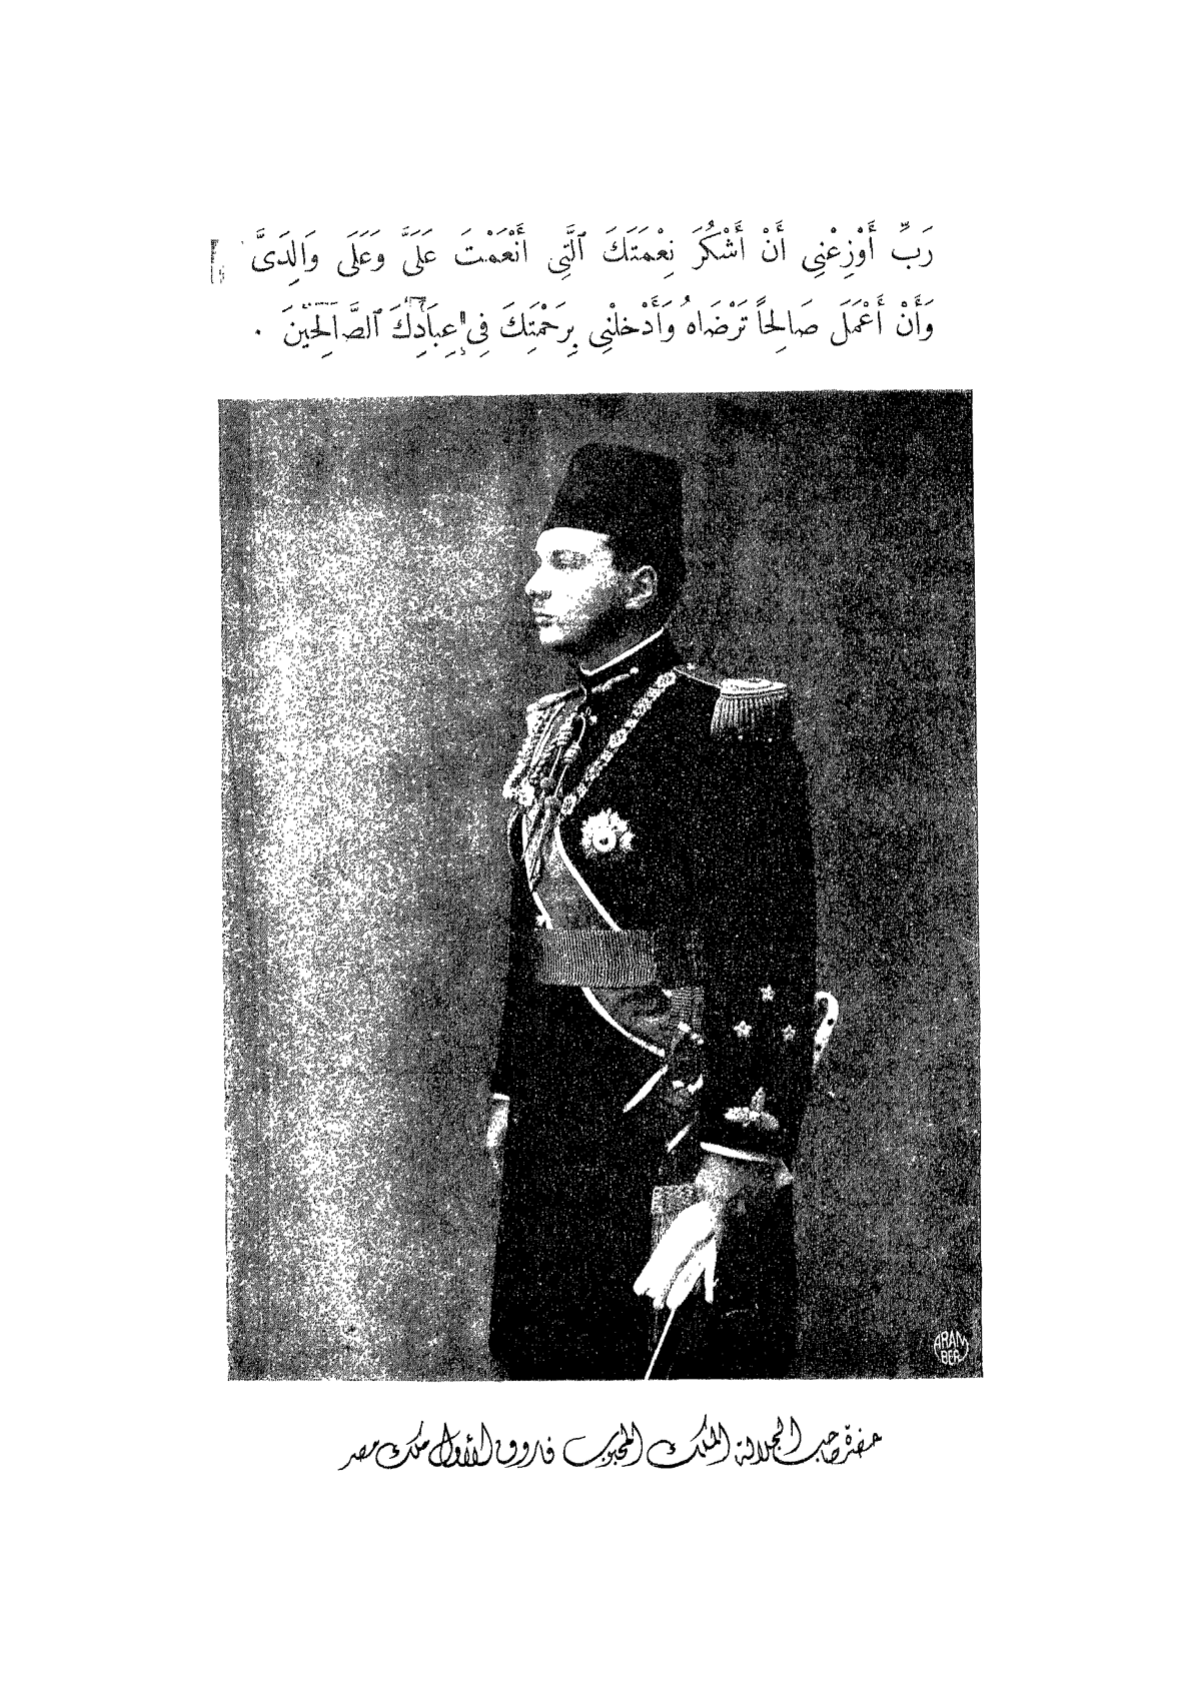 رَبِّ أَوْزِعْنِي أَنْ أَشْكُرَ نِعْمَتَكَ ٱلَّتِي أَنْعَمْتَ عَلَىَّ وَعَلَى وَالِدَىَّ
وَأَنْ أَعْمَلَ صَالِحاً تَرْضَاهُ وَأَدْخِلْنِي بِرَحْمَتِكَ فِي عِبَادِكَ ٱلصَّالِحِينَ .
ARAM
BER
حضرة صاحب الجلالة الملك المحبوب فاروق الأول ملك مصر